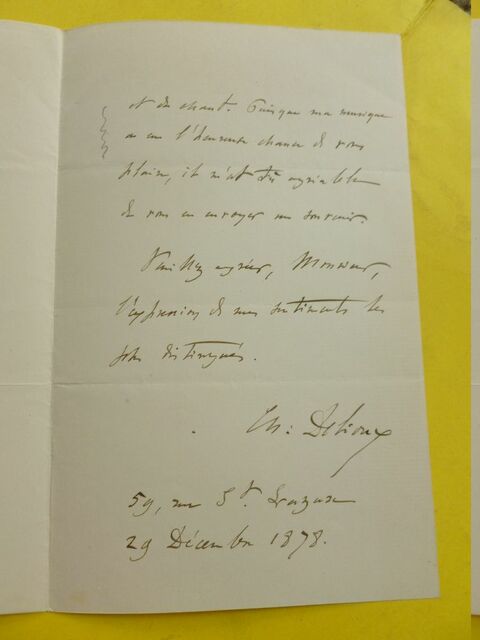 et du chant. Puisque ma musique
a eu l'heureuse chance de vous
plaire, il m'est très agréable
de vous en envoyer un souvenir.
Veuillez agréer, Monsieur,
l'expression de mes sentiments les
plus distingués.
Ch: Delioux
59, rue St. Lazare
29 Décembre 1878.